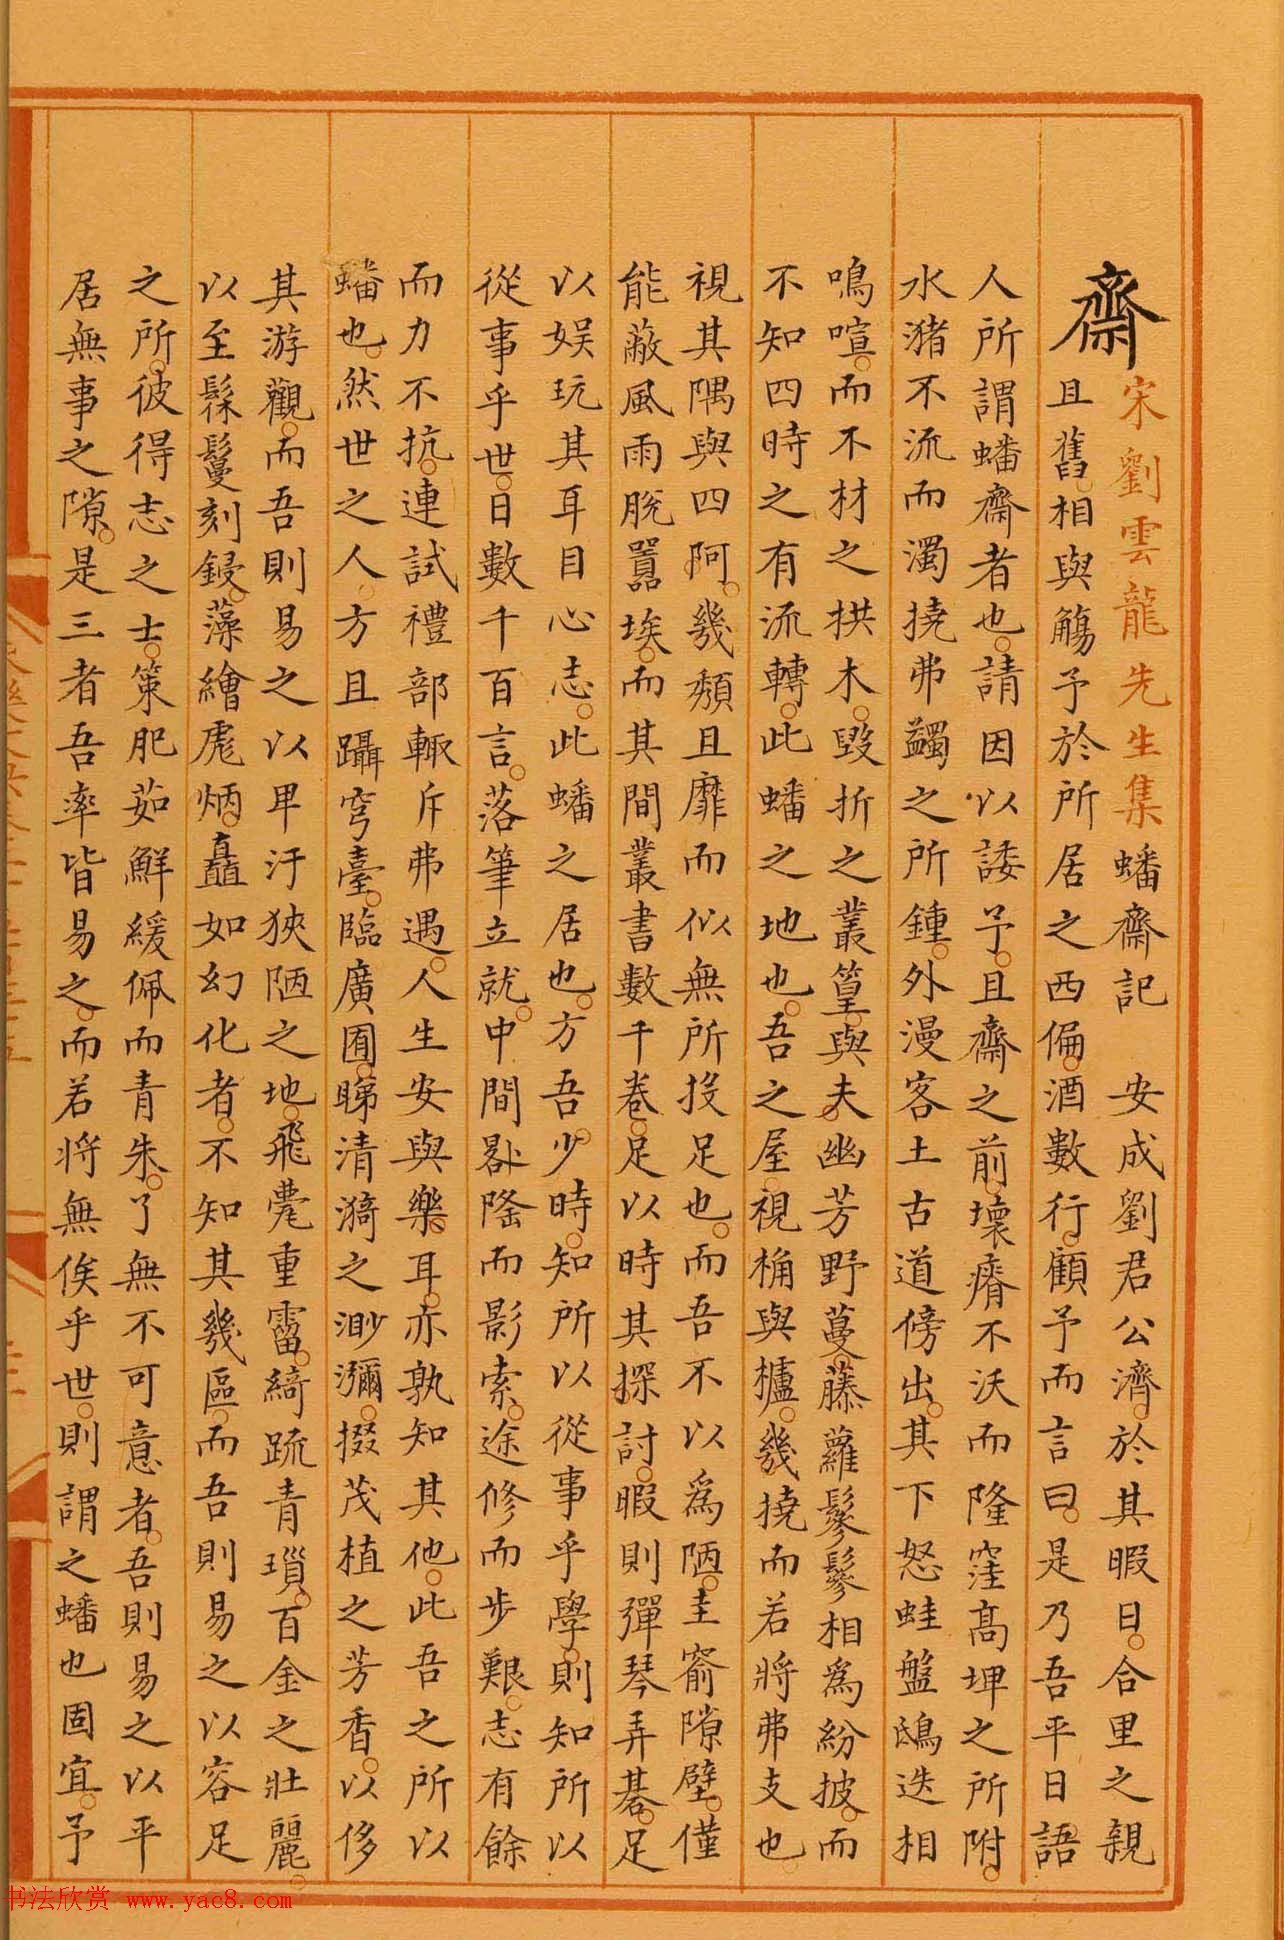 齋
宋劉雲龍先生集蟠齋記 安成劉君公濟於其暇日合里之親
且舊相與觴予於所居之西偏酒數行顧予而言曰是乃吾平日語
人所謂蟠齋者也請因以諉予且齋之前壞瘠不沃而隆窪高埤之所附
水豬不流而濁撓弗蠲之所鍾外漫客土古道傍出其下怒蛙盤鴟迭相
鳴喧而不材之拱木毀折之叢篁與夫幽芳野蔓藤蘿鬖鬖相為紛披而
不知四時之有流轉此蟠之地也吾之屋視桷與櫨幾撓而若將弗支也
視其隅與四阿幾頹且靡而似無所投足也而吾不以為陋圭窬隙壁僅
能蔽風雨脫囂埃而其間叢書數千卷足以時其探討暇則彈琴弄碁足
以娛玩其耳目心志此蟠之居也方吾少時知所以從事乎學則知所以
從事乎世日數千百言落筆立就中間尠隆而影索途修而步艱志有餘
而力不抗連試禮部輒斥弗遇人生安與樂耳亦孰知其他此吾之所以
蟠也然世之人方且躡穹臺臨廣囿睇清漪之渺瀰掇茂植之芳香以侈
其游觀而吾則易之以卑汙狹陋之地飛甍重霤綺疏青瑣百金之壯麗
以至髹鬘刻鋟藻繪彪炳矗如幻化者不知其幾區而吾則易之以容足
之所彼得志之士策肥茹鮮緩佩而青朱了無不可意者吾則易之以平
居無事之隙是三者吾率皆易之而若將無俟乎世則謂之蟠也固宜予
书法欣赏 www.yac8.com